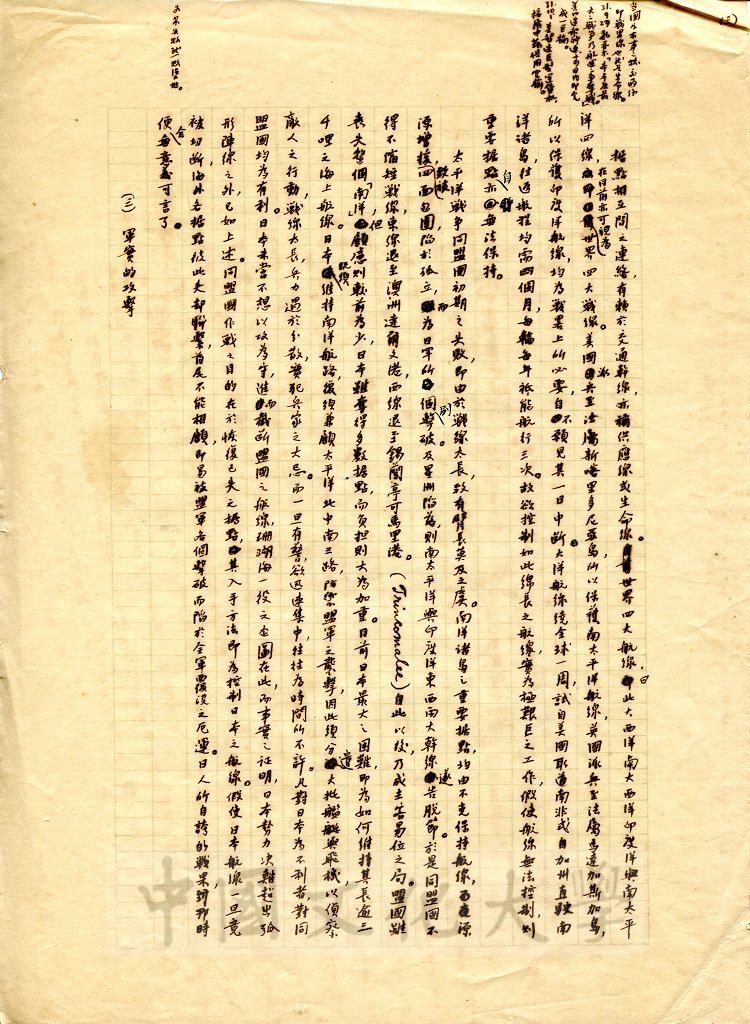 (5)
據點相互間之連絡,有賴於交通幹線,亦稱供應線或生命線。世界四大航線,曰此大西洋南大西洋印度洋與南太平
洋四線,在目前亦可視為世界四大戰線。美國派兵至法屬新喀里多尼亞島,所以保護南太平洋航線,英國派兵至法屬馬達加斯加島,
所以保護印度洋航線,均為戰畧上所必要,自不類見其一日中斷。大洋航線繞全球一周,試自美國取道南非或自加州直駛南
洋諸島,往返航程均需四個月,每輪每年祇能航行三次。故欲控制如此綿長之航線,實為極艱巨之工作,假使航線無法控制,則
重要據點亦自無法保持。
太平洋戰爭同盟國初期之失敗,即由於戰線太長,致有臂長莫及之虞。南洋諸島之重要據點,均由不克保持航線,
源增援,致被四面包圍,陷於孤立,而為日軍所個別擊破。及星洲陷落,則南太平洋與印度洋東西兩大幹線遂告脫節。於是同盟國不
得不縮短戰線,東線退至澳洲達爾文港,西線退至錫蘭亭可馬里港。(Trinkomalee)自此以後,乃成主客易位之局。盟國雖
喪失整個「南洋」,但顧慮則較前為少,日本雖奪得多數據點,而負担則大為加重。目前日本最大之困難,即為如何維持其長逾三
千哩之海上航線。日本既須維持南洋航路,復須兼顧太平洋北中南三路,防禦盟軍之襲擊,因此須分遣大批艦艇與飛機,以偵察
敵人之行動,戰線為長,兵力過於分散,實犯兵家之大忌。而一旦有警,欲迅速集中,往往為時間所不許。凡對日本為不利者,對同
盟國均為有利。日本未嘗不想以攻為守,進而截斷盟國之航線,珊瑚海一役之企圖在此,而事實之証明,日本勢力決難超出弧
形陣線之外,已如上述。同盟國作戰之目的在於恢復已失之據點,其入手方法即為控制日本之航線。假使日本航線一旦竟
被切斷,海外各據點彼此失却聯繫,首尾不能相顧,即易被盟軍各個擊破,而陷於全軍覆沒之厄運。日人所自誇的戰果,到那時
便全無意義可言了。
(三) 軍實的攻擊
中國文化大學